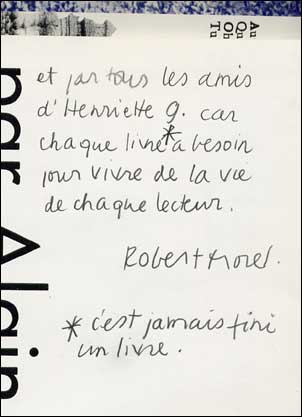 Au
Qu
Oh
Tu
par Alain
et par tous les amis
d'Henriette G. car
chaque livre* a besoin
pour vivre de la vie
de chaque lecteur.
Robert Morel.
* c'est jamais fini
un livre.